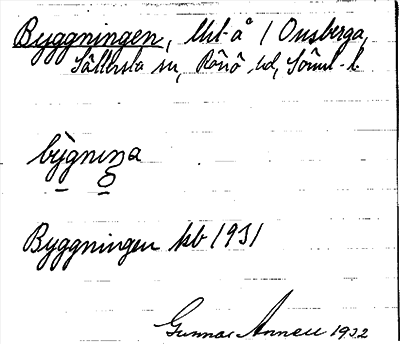 Byggningen, Utt å / Onsberga,
Sättersta sn, Rönö hd, Söml. l.
bygniŋa
Byggningen kb 1931
Gunnar Annell 1932